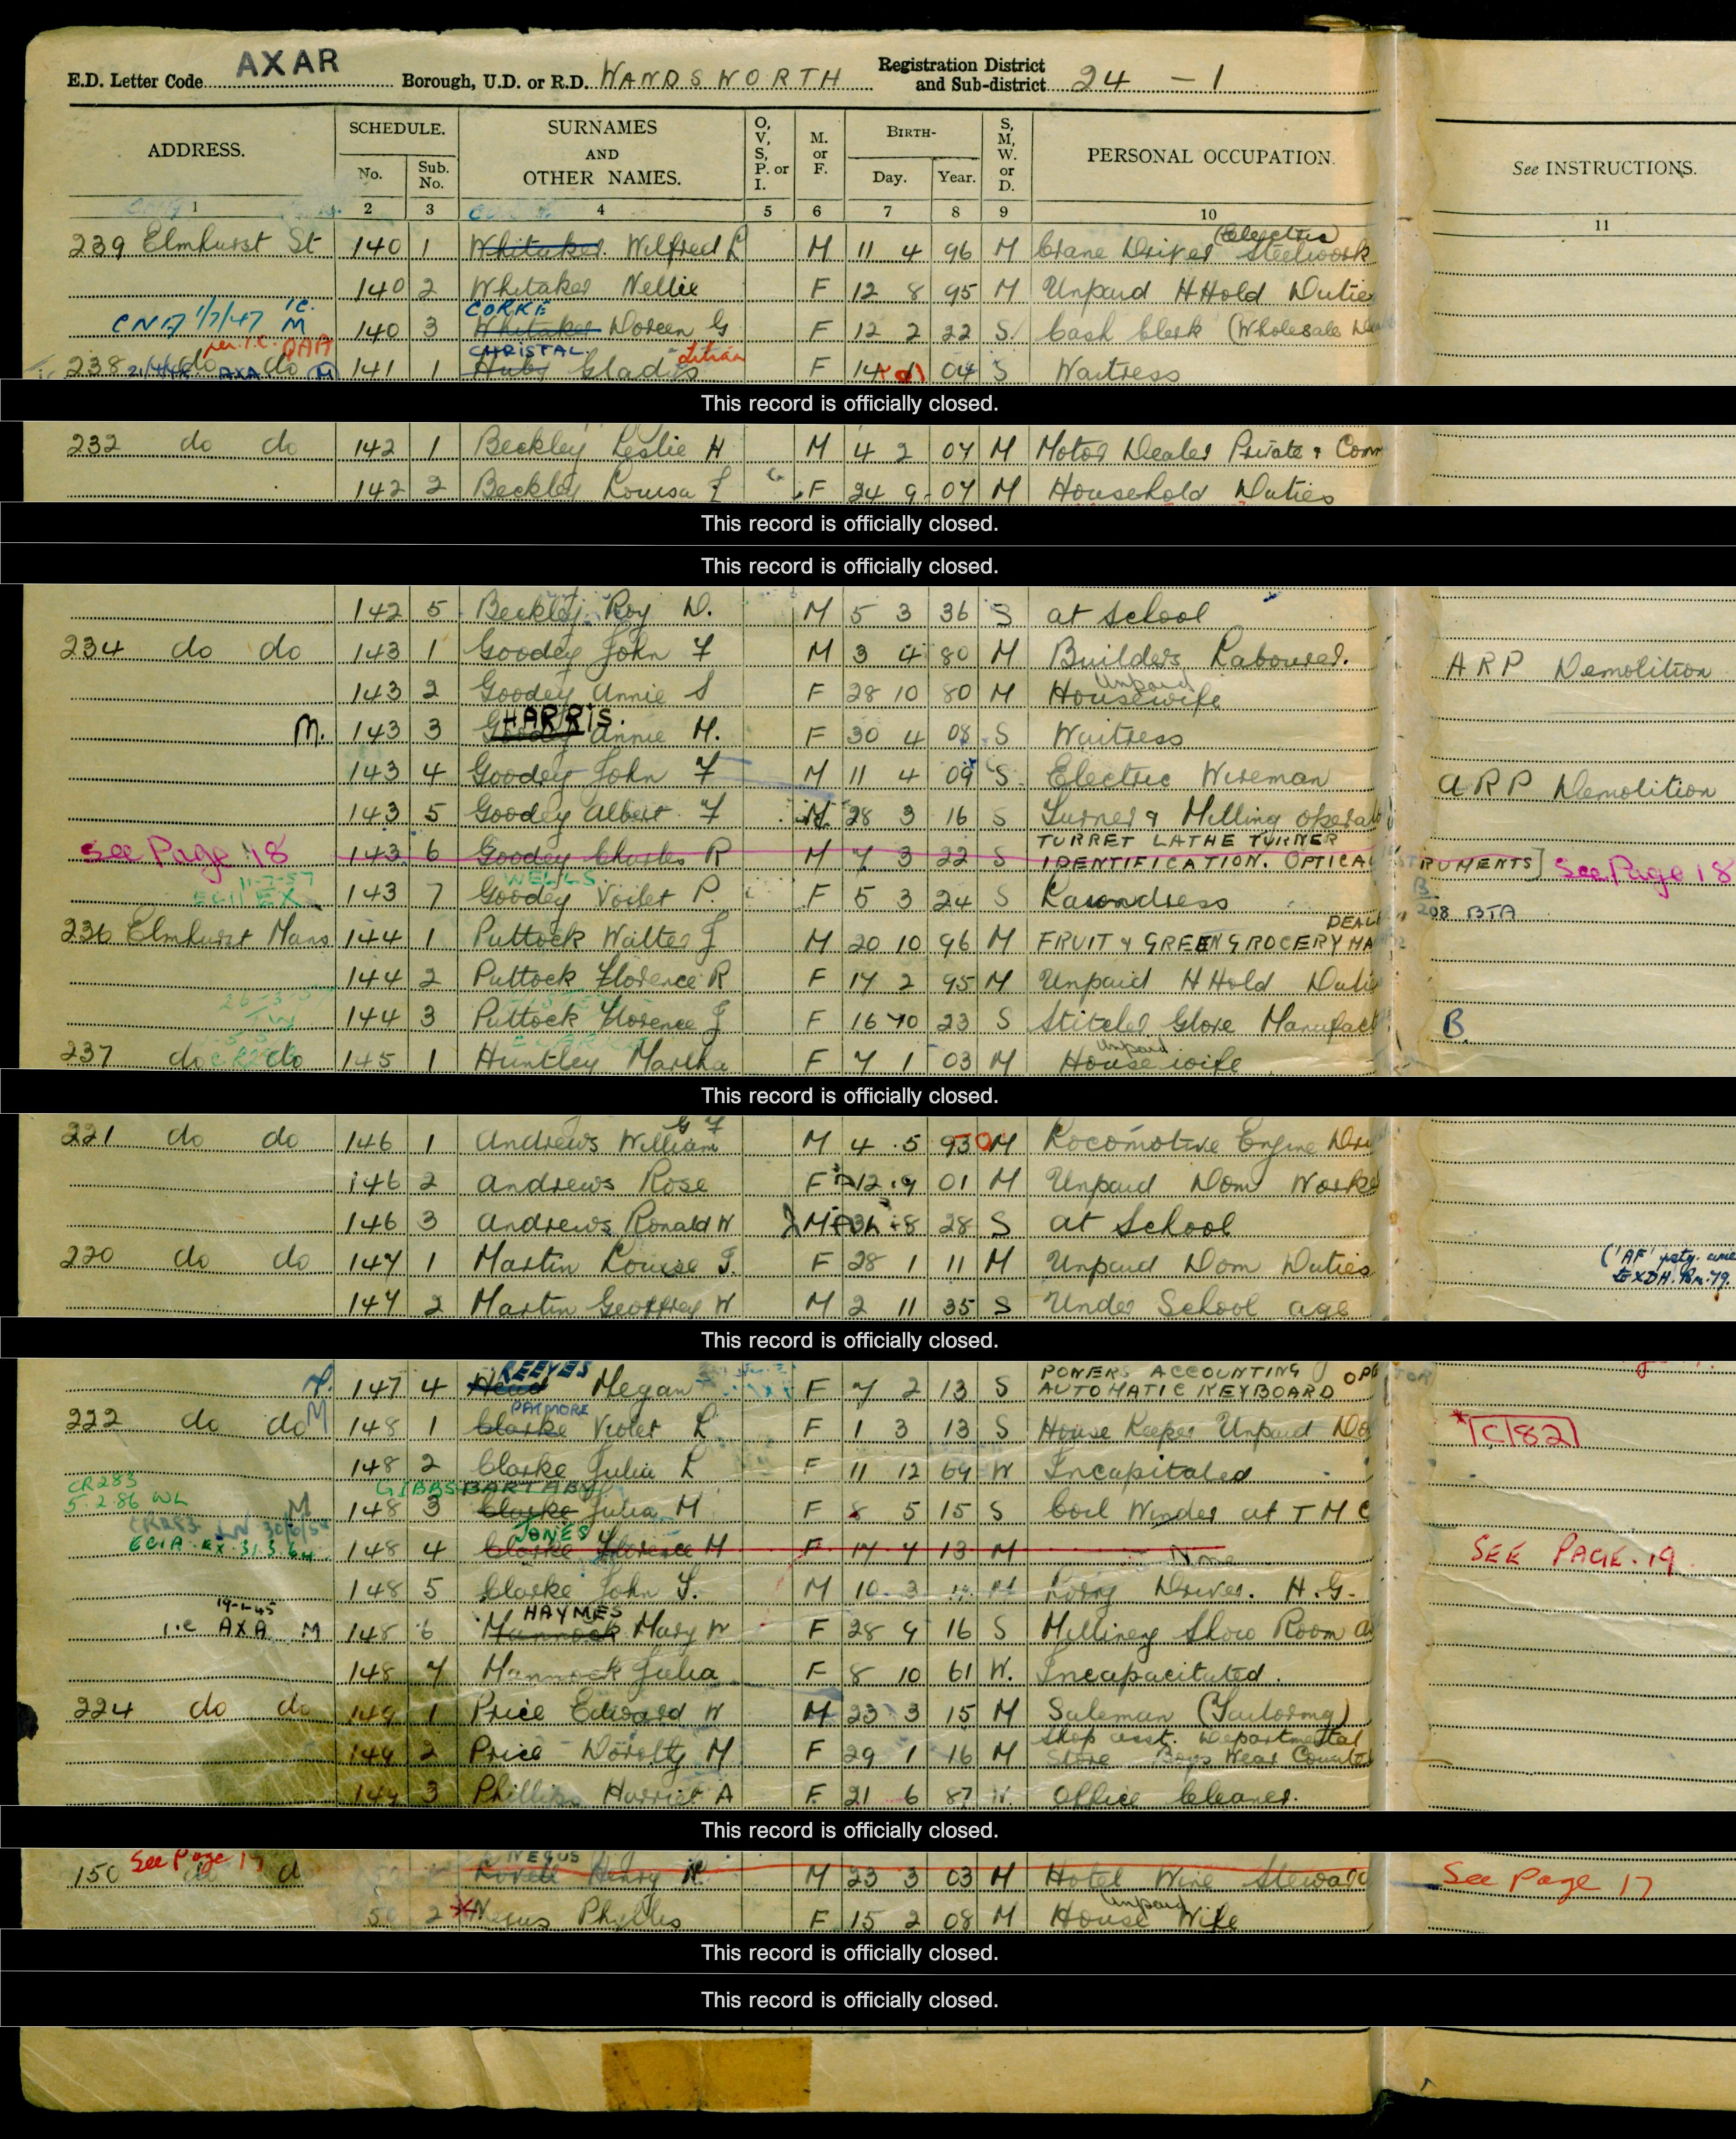 E.D. Letter Code AXAR Borough, U.D. or R.D. WANDSWORTH Registration District and Sub-district 24 - 1
ADDRESS. SCHEDULE. No. Sub. No. SURNAMES AND OTHER NAMES. O, V, S, P. or I. M. or F. BIRTH- Day. Year. S, M, W. or D. PERSONAL OCCUPATION. See INSTRUCTIONS.
1 2 3 4 5 6 7 8 9 10 11
239 Elmhurst St 140 1 Whitaker Wilfred L M 11 4 96 M Crane Driver (Electric) Steelwork
140 2 Whitaker Nellie F 12 8 95 M Unpaid HHold Dutie
CORKE
1/7/47 M 140 3 Whitaker Doreen G F 12 2 22 S Cash Clerk (Wholesale
CHRISTAL
238 do do M 141 1 Huby Gladys Lilian F 14 04 S Waitress
This record is officially closed.
232 do do 142 1 Beckley Leslie H M 4 2 07 M Motor Dealer Private & Com
142 2 Beckley Louisa F 24 9 07 M Household Duties
This record is officially closed.
This record is officially closed.
142 5 Beckley Roy D. M 5 3 36 S at School
234 do do 143 1 Goodey John F M 3 4 80 M Builders Labourer. ARP Demolition
143 2 Goodey Annie S F 28 10 80 M Unpaid Housewife
HARRIS.
M. 143 3 Goodey Annie M. F 30 4 08 S Waitress
143 4 Goodey John F M 11 4 09 S Electric Wireman ARP Demolition
143 5 Goodey Albert F M 28 3 16 S Turner & Milling operat
See Page 18 143 6 Goodey Charles R M 7 3 22 S TURRET LATHE TURNER IDENTIFICATION. OPTICAL INSTRUMENTS] See Page 18
WELLS
11-7-57 143 7 Goodey Voilet P. F 5 3 24 S Laundress 208 BTA
236 Elmhurst Mans 144 1 Puttock Walter J M 20 10 96 M FRUIT & GREENGROCERY DEAL
144 2 Puttock Florence R F 17 2 95 M Unpaid HHold Duti
144 3 Puttock Florence J F 16 10 23 S Stitcher Glove Manufact B.
237 do do 145 1 Huntley Martha F 7 1 03 M Unpaid Housewife
This record is officially closed.
221 do do 146 1 Andrews William G F M 4 5 93 M Locomotive Engine Dri
146 2 Andrews Rose F 12 9 01 M Unpaid Dom Worke
146 3 Andrews Ronald W M 8 28 S at School
220 do do 147 1 Martin Louise J. F 28 1 11 M Unpaid Dom Duties
147 2 Martin Geoffrey W M 2 11 35 S Under School age
This record is officially closed.
REEVES
147 4 Head Megan F 7 2 13 S POWERS ACCOUNTING AUTOMATIC KEYBOARD OPERATOR
PATMORE
222 do do M 148 1 Clarke Violet L F 1 3 13 S House Keeper Unpaid Do *C182
148 2 Clarke Julia L F 11 12 69 W Incapitated
CR283 5.2.86 WL GIBBS BARTABY
M 148 3 Clarke Julia M F 8 5 15 S Coil Winder at T M C
JONES
31.3.64 148 4 Clarke Florence M F 17 7 13 M None SEE PAGE. 19
148 5 Clarke John J. M 10 3 M Lorry Driver. H.G.
19-1-45 HAYMES
i.c AXA M 148 6 Mannock Mary W F 28 9 16 S Millinery Show Room
148 7 Mannock Julia F 8 10 61 W. Incapacitated.
224 do do 149 1 Price Edward W M 23 3 15 M Saleman (Tailoring)
149 2 Price Dorothy M F 29 1 16 M Shop asst. Departmental Store Boys Wear Counte
149 3 Phillips Harriet A F 21 6 87 W. Office Cleaner.
This record is officially closed.
NEGUS
150 See Page 17 Lovell Henry M 23 3 03 M Hotel Wine Steward See Page 17
2 Negus Phyllis F 15 2 08 M Unpaid House Wife
This record is officially closed.
This record is officially closed.